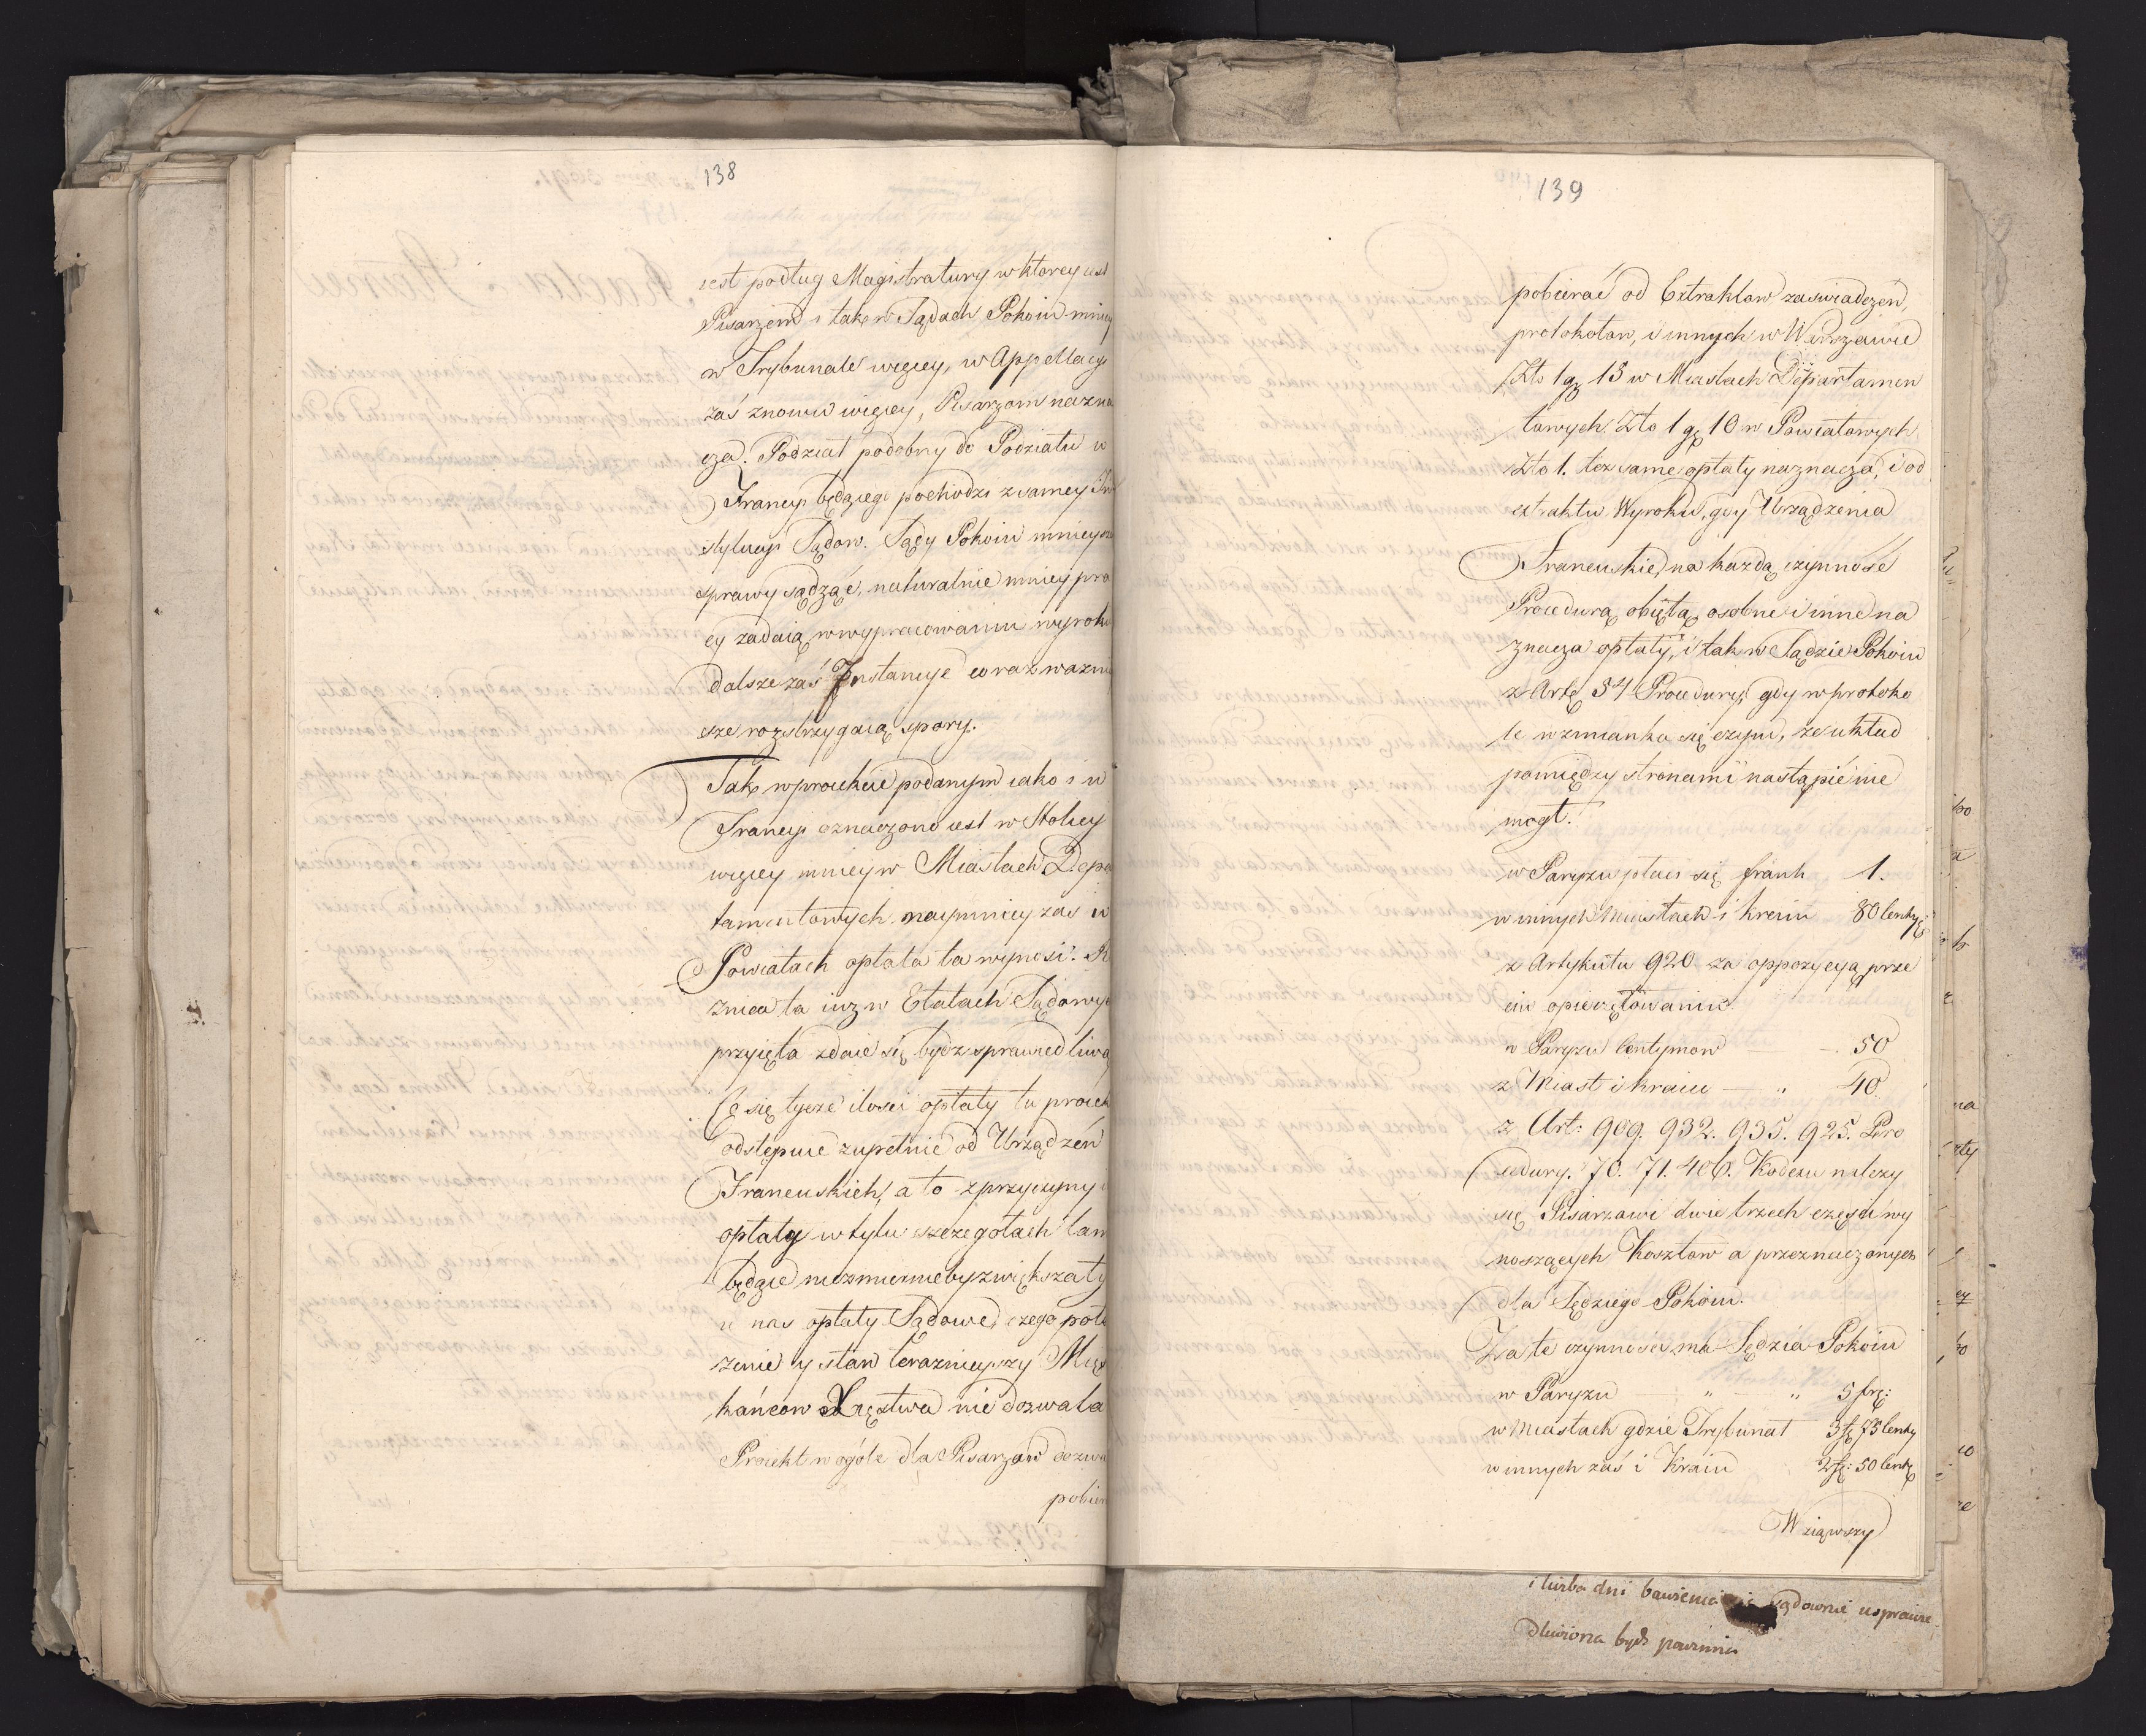 138
iest podług Magistratury w ktorey iest
Pisarzem i tak w Sądach Pokoiu mniey
w Trybunale więcey, w Appellacyi
zaś znowu więcey, Pisarzom nazna
cza. Podział podobny do Podziału w
Francyi będącego pochodzi z samey In
stytucyi Sądow. Sądy Pokoiu mnieysze
sprawy sądząc, naturalnie mniey pra
cy zadaią w wypracowaniu wyroku
dalsze zaś Instancye coraz wazniey
sze rozstrzygaią spory.
Tak w proiekcie podanym iako i w
Francyi oznaczono iest w Stolicy
więcey mniey w Miastach Depar
tamentowych naymniey zas w
Powiatach opłata ta wynosi. Ró
znica ta iuz w Etatach Sądowych
przyięta zdaie się bydz sprawiedliwą
Co się tycze ilości opłaty tu proiekt
odstępuie zupełnie od Urządzeń
Francuskich, a to z przyczyny i
opłaty w tylu szczegołach tam
będące niezmiernie by zwiększały
u nas opłaty Sądowe, czego poło
zenie y stan teraznieyszy Miesz
kańcow Xięstwa nie dozwala
Proiekt w ogóle dla Pisarzow dozwa
pobier
139
pobierać od Extraktow zaswiadczeń,
protokołow, i innych w Warszawie
Zło 1 gr 15 w Miastach Departamen
towych Zło 1 gr 10 w Powiatowych
Zło 1. tez same opłaty naznacza, i od
extraktu Wyroku, gdy Urządzenia
Francuskie, na kazdą czynność
Procedurą obiętą, osobne i inne na
znacza opłaty, i tak w Sądzie Pokoiu
z Artę 54 Procedury, gdy w protoko
le wzmianka się czyni, ze układ
pomiędzy stronami nastąpić nie
mogł.
w Paryzu płaci się frank 1.
w innych Miastach i kraiu 80 Centy:
z Artykułu 926 za oppozycyą prze
ciw opieczętowaniu
w Paryzu Centymow — . 50
z Miast i kraiu — „ 40
z Art: 909. 932. 935. 925. Pro
cedury. 70. 71. 406. Kodexu nalezy
się Pisarzowi dwie trzech części wy
noszących Kosztow a przeznaczonych
dla Sędziego Pokoiu.
Za te czynności ma Sędzia Pokoiu
w Paryzu „ „ 5 fr:
w Miastach gdzie Trybunał 3 fr 75 Centy
w innych zaś i Kraiu 2 fr: 50 Centy
Wziąwszy
i liczba dni bawienia sądownie usprawie
dliwiona bydz powinna